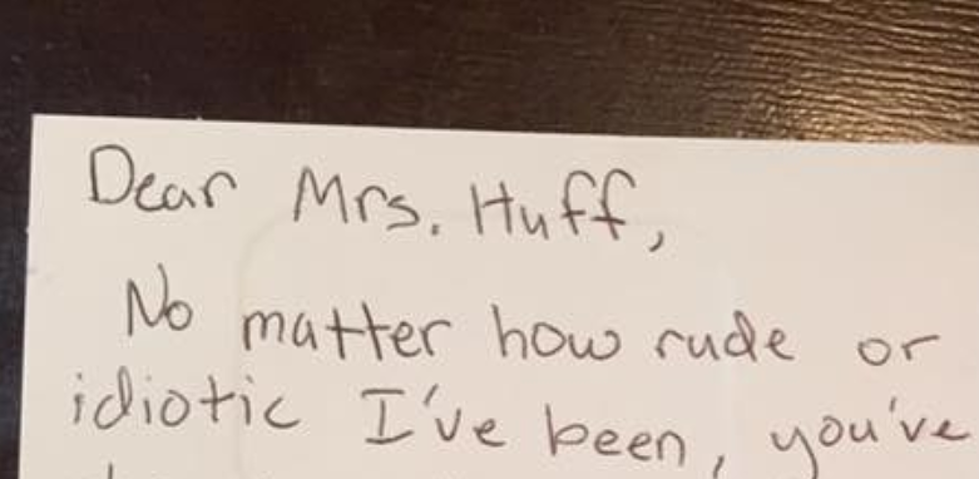 Dear Mrs. Huff,
No matter how rude or
idiotic I've been, you've